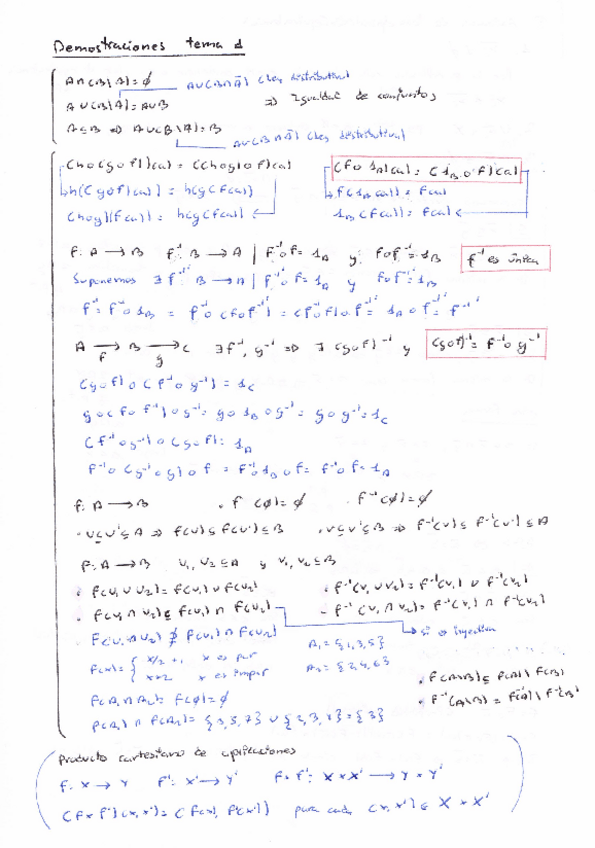 Demostraciones tema 1
A∩(B\A)=∅
A∪(B∩Ā) (ley distributiva)
A∪(B\A)=A∪B ⇒ Igualdad de conjuntos
A⊆B ⇒ A∪(B\A)=B
A∪(B∩Ā) (ley distributiva)
(h∘(g∘f))(a) = ((h∘g)∘f)(a)
(f∘1A)(a) = (1B∘f)(a)
h((g∘f)(a)) = h(g(f(a)))
f(1A(a)) = f(a)
(h∘g)(f(a)) = h(g(f(a)))
1B(f(a)) = f(a)
f: A → B f⁻¹: B → A | f⁻¹∘f = 1A y f∘f⁻¹ = 1B f⁻¹ es única
Suponemos ∃ f⁻¹': B → A | f⁻¹'∘f = 1A y f∘f⁻¹' = 1B
f⁻¹ = f⁻¹∘1B = f⁻¹∘(f∘f⁻¹') = (f⁻¹∘f)∘f⁻¹' = 1A∘f⁻¹' = f⁻¹'
A →f B →g C ∃ f⁻¹, g⁻¹ ⇒ ∃ (g∘f)⁻¹ y (g∘f)⁻¹ = f⁻¹∘g⁻¹
(g∘f)∘(f⁻¹∘g⁻¹) = 1C
g∘(f∘f⁻¹)∘g⁻¹ = g∘1B∘g⁻¹ = g∘g⁻¹ = 1C
(f⁻¹∘g⁻¹)∘(g∘f) = 1A
f⁻¹∘(g⁻¹∘g)∘f = f⁻¹∘1B∘f = f⁻¹∘f = 1A
f: A → B · f(∅) = ∅ · f⁻¹(∅) = ∅
· U⊆U'⊆A ⇒ f(U)⊆f(U')⊆B · V⊆V'⊆B ⇒ f⁻¹(V)⊆f⁻¹(V')⊆A
f: A → B U₁, U₂⊆A y V₁, V₂⊆B
· f(U₁∪U₂) = f(U₁)∪f(U₂) · f⁻¹(V₁∪V₂) = f⁻¹(V₁)∪f⁻¹(V₂)
· f(U₁∩U₂)⊆f(U₁)∩f(U₂) · f⁻¹(V₁∩V₂) = f⁻¹(V₁)∩f⁻¹(V₂)
f(U₁∩U₂) ⊉ f(U₁)∩f(U₂) → si es inyectiva
A₁ = {1,3,5}
f(x) = { x/2+1, x es par
x+2 x es impar
A₂ = {2,4,6}
· f(A\B)⊆f(A)\f(B)
f(A₁∩A₂) = f(∅) = ∅
· f⁻¹(A\B) = f⁻¹(A)\f⁻¹(B)
f(A₁)∩f(A₂) = {3,5,7}∪{2,3,4} = {3}
Producto cartesiano de aplicaciones
f: X → Y f': X' → Y' f×f': X×X' → Y×Y'
(f×f')(x,x') = (f(x), f'(x')) para cada (x,x')∈X×X'